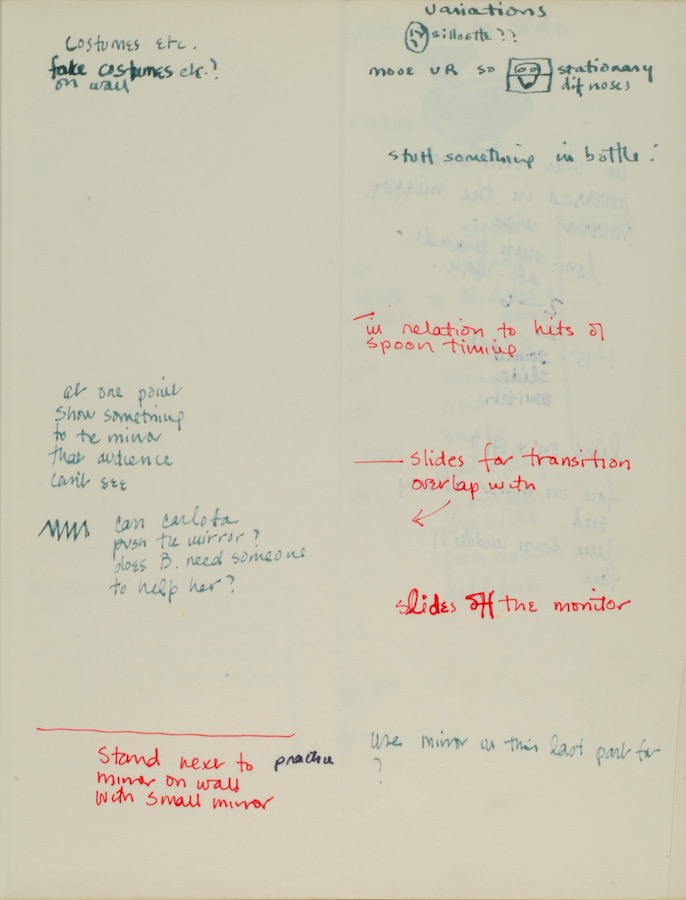 Costumes Etc.
fake costumes etc.?
on wall
at one point
show something
to the mirror
that audience
can't see
can carlota
push the mirror?
does B. need someone
to help her?
Stand next to practice
mirror on wall
with small mirror
variations
silloette??
move VR so stationary
dif noses
stuff something in bottle
in relation to hits of
spoon timing
slides for transition
overlap with
slides off the monitor
use mirror in this last part for
?